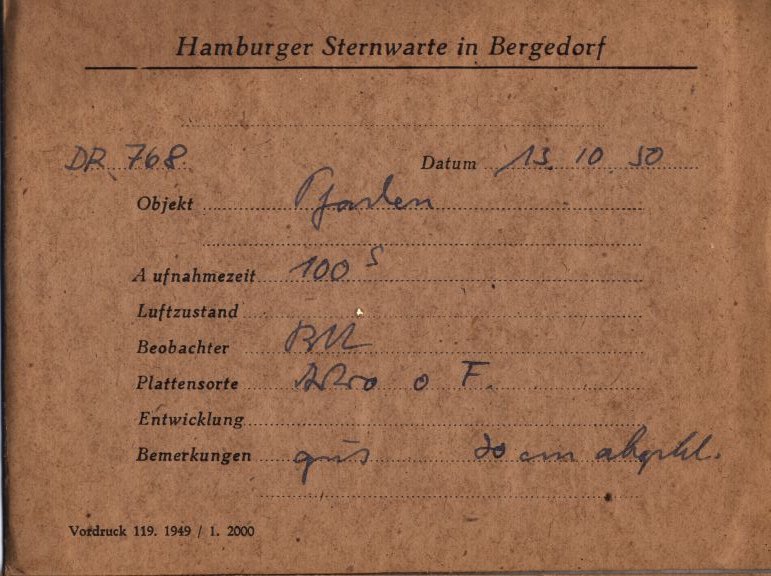 Hamburger Sternwarte in Bergedorf
DR 768 Datum 13. 10. 50
Objekt
Aufnahmezeit 100 s
Luftzustand
Beobachter
Plattensorte Astro o F.
Entwicklung
Bemerkungen 30 cm
Vordruck 119. 1949 / 1. 2000